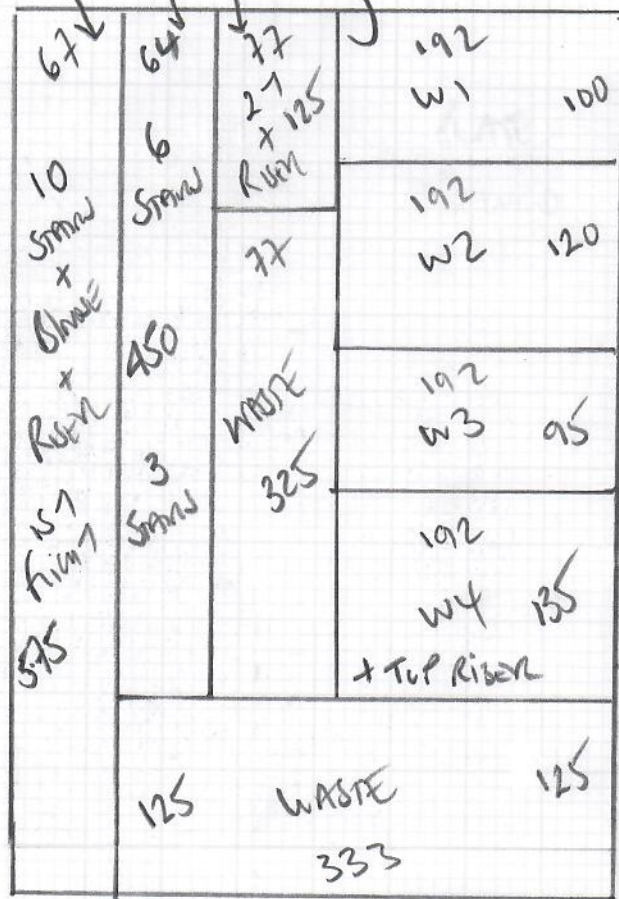 67
10
STAIRS
+
BLANE
+
RISER
1ST
FLIGHT
575
64
6
STAIRS
450
3
STAIRS
77
21
+ 125
RISER
77
WASTE
325
192
W1 100
192
W2 120
192
W3 95
192
W4 135
+ TOP RISER
125 WASTE 125
333